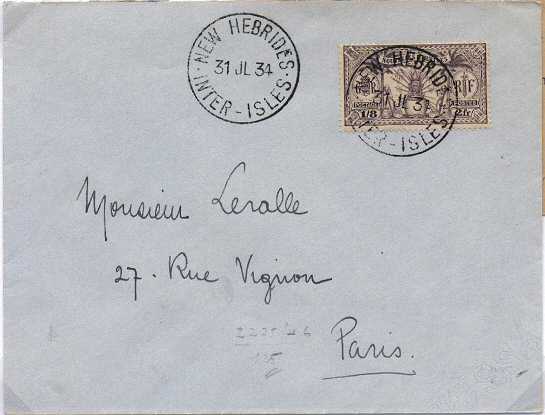 NEW HEBRIDES
31 JL 34
INTER-ISLES
NEW HEBRIDES
31 JL 34
INTER-ISLES
RF
POSTAGE
POSTES
1/8
2fr
Monsieur Leralle
27. Rue Vignon
Paris.